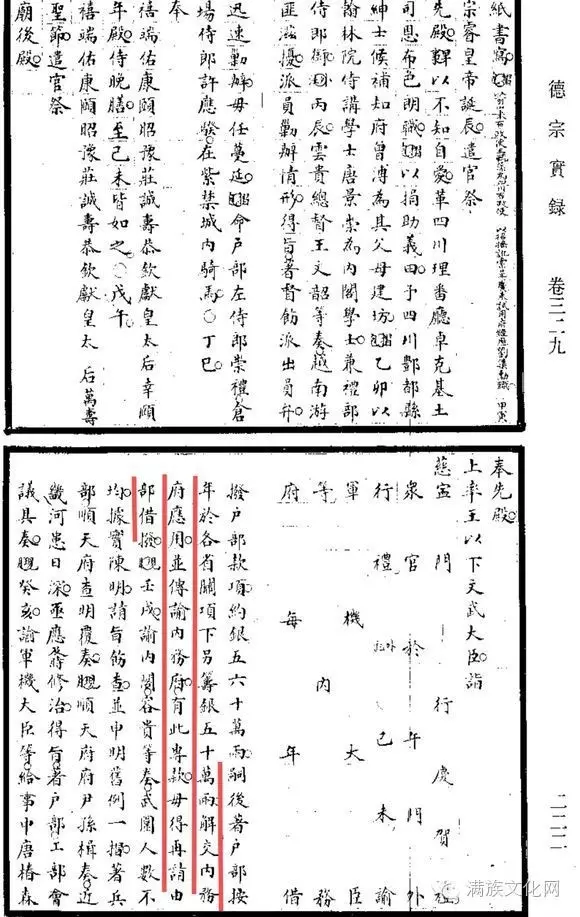 德宗實録 卷三二九
二二二二
紙書寫
宗睿皇帝誕辰遣官祭
先殿以不知自愛革四川理番廳卓克基土
司恩布色朗職以捐助義田予四川酆都縣
紳士候補知府曾溥為其父母建坊乙卯以
翰林院侍講學士唐景崇為內閣學士兼禮部
侍郎銜丙辰雲貴總督王文韶等奏越南游
匪滋擾派員勦辦情形得旨著督飭派出員弁
迅速勦辦毋任蔓延命戶部左侍郎崇禮倉
場侍郎許應騤在紫禁城內騎馬○丁巳
奉
禧端佑康頤昭豫莊誠壽恭欽獻皇太后幸頤
年殿侍晚膳至己未皆如之○戊午
禧端佑康頤昭豫莊誠壽恭欽獻皇太后萬壽
聖節遣官祭
廟後殿
奉先殿
上率王以下文武大臣詣
慈寧門行慶賀禮
眾官於午門外
行禮己未諭
軍機大臣
等內務
府每年借
撥戶部款項約銀五六十萬兩嗣後著戶部按
年於各省關項下另籌銀五十萬兩解交內務
府應用並傳諭內務府有此專款毋得再請由
部借撥壬戌諭內閣容貴等奏武闈人數不
均據實陳明請旨飭查並申明舊例一摺著兵
部順天府查明覆奏順天府府尹孫楫奏近
畿河患日深亟應籌修治得旨著戶部工部會
議具奏癸亥諭軍機大臣等給事中唐椿森
满族文化网